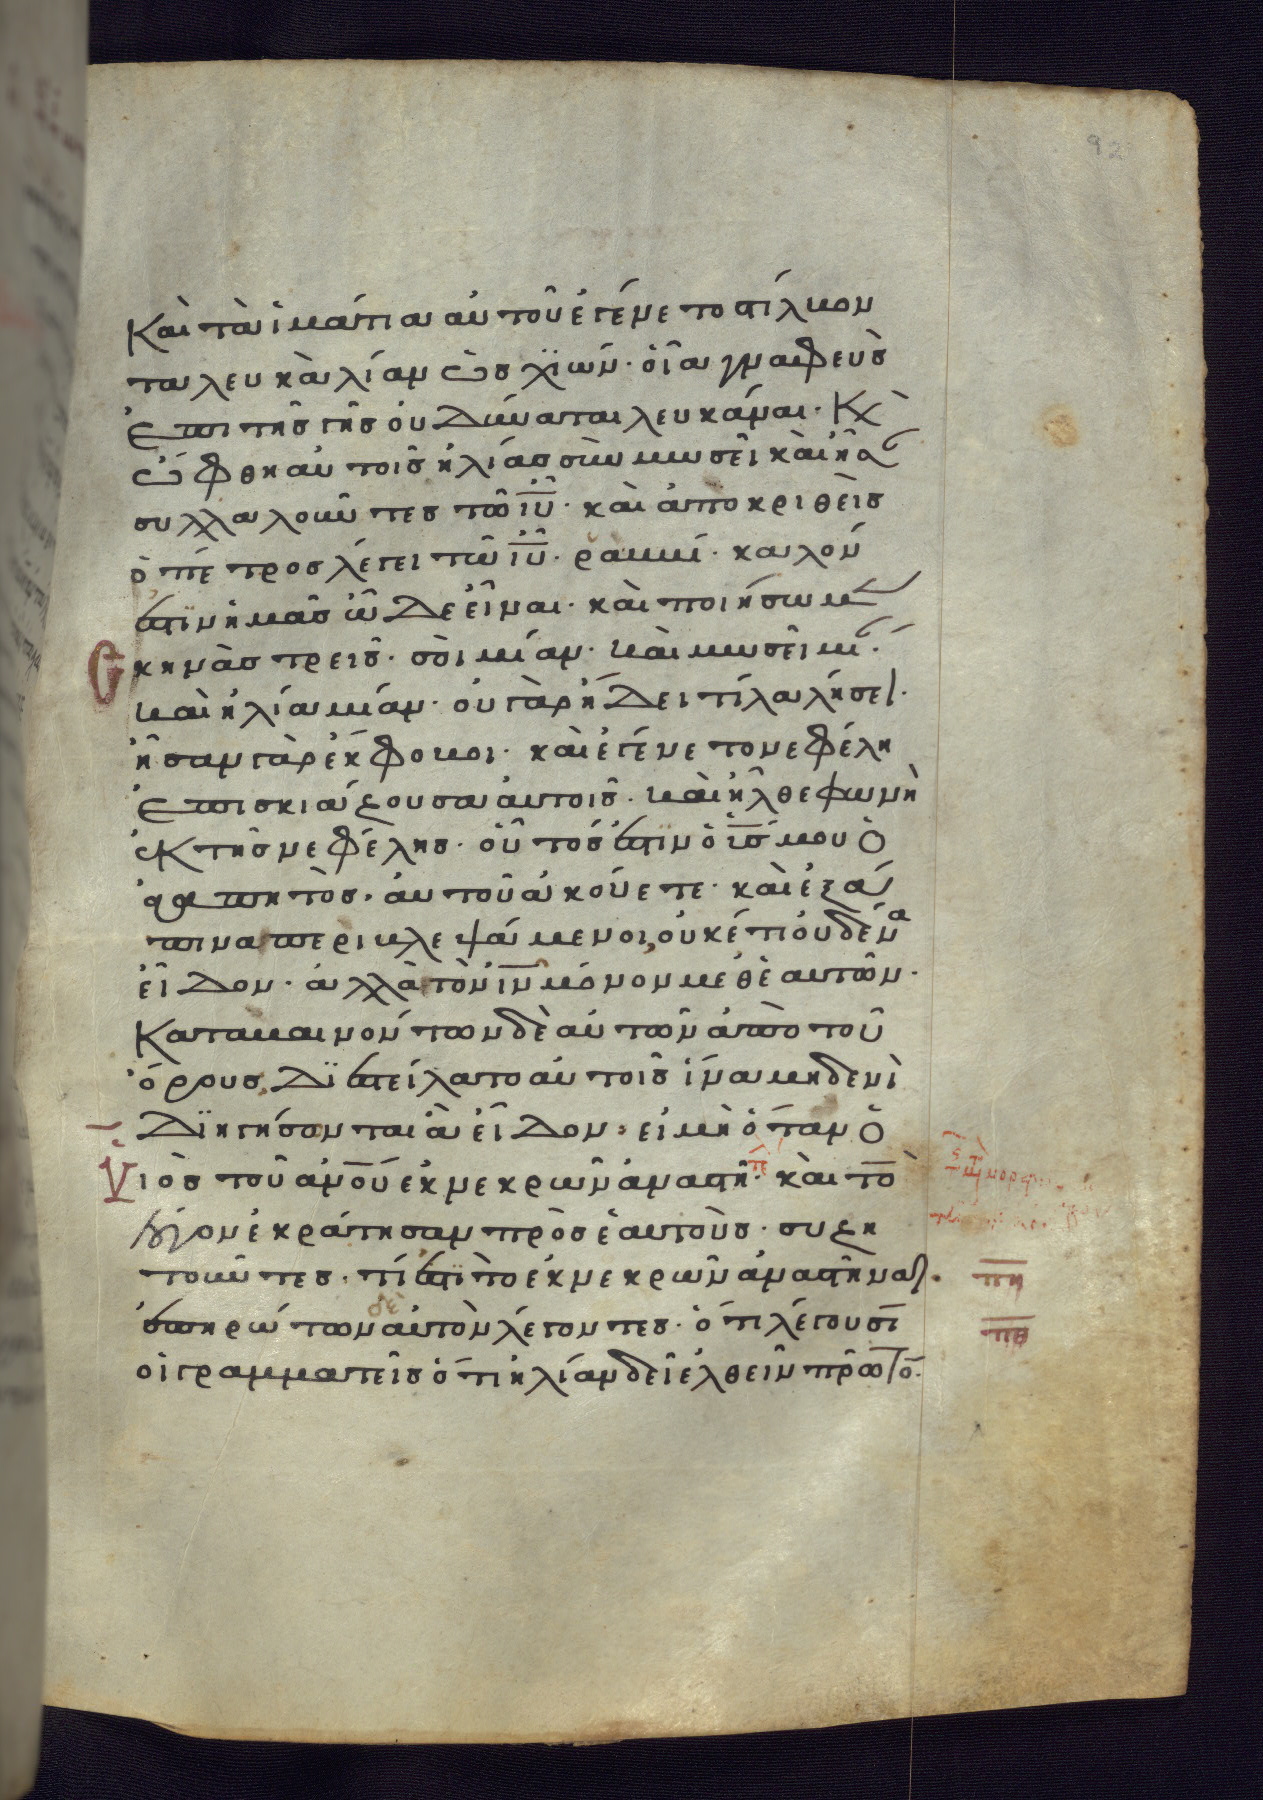 92
Καὶ τὰ ἱμάτια αὐτοῦ ἐγένετο στίλβον
τα λευκὰ λίαν ὡς χϊών· οἷα γναφεὺς
ἐπι τῆς γῆς οὐ δύναται λευκάναι· Κ(αὶ)
ὤφθη αὐτοῖς ἡλίας σὺν μωσεῖ καὶ ἦσ(αν)
συλλαλοῦντες τῶ ἰῦ· καὶ ἀποκριθεὶς
ὁ πέτρος λέγει τῶ ἰῦ· ραββί· καλόν
ἐστϊν ἡμᾶς ὧδε εἶναι· καὶ ποιήσωμ(εν)
σκηνὰς τρεῖς· σὸι μίαν· καὶ μωσεῖ μί(αν)·
καὶ ἡλία μίαν· οὐ γὰρ ἤδει τί λαλήσει·
ἦσαν γὰρ ἔκφοβοι· καὶ ἐγένετο νεφέλη
ἐπισκιάζουσα αὐτοῖς· καὶ ἦλθε φωνὴ
ἐκ τῆς νεφέλης· οὗτός ἐστϊν ὁ ϊς μου ὁ
ἀγαπητὸς· αὐτοῦ ἀκούετε· καὶ ἐξά
πινα περιβλεψάμενοι, οὐκέτι οὐδένα
εἶδον· ἀλλὰ τὸν ἰν μόνον μεθὲ αυτῶν·
Καταβαινόντων δὲ αὐτῶν ἀπὸ τοῦ
ὄρους, δϊεστείλατο αὐτοῖς ἵνα μηδενὶ
δϊηγήσονται ἃ εἶδον· εἰ μὴ ὅταν ὁ
Υἱὸς τοῦ ἀνου ἐκ νεκρῶν ἀναστῆ· καὶ τὸ
λόγον ἐκράτησαν πρὸς ἑαυτοὺς· συζη
τοῦντες· τί ἐστϊ τὸ ἐκ νεκρῶν ἀναστῆναι·
πη
ἐπηρώτων δὲ αὐτὸν λέγοντες· ὅτι λέγουσῖ
πθ
οἱ γραμματεῖς ὅτι ἡλίαν δεῖ ἐλθεῖν πρῶτο·